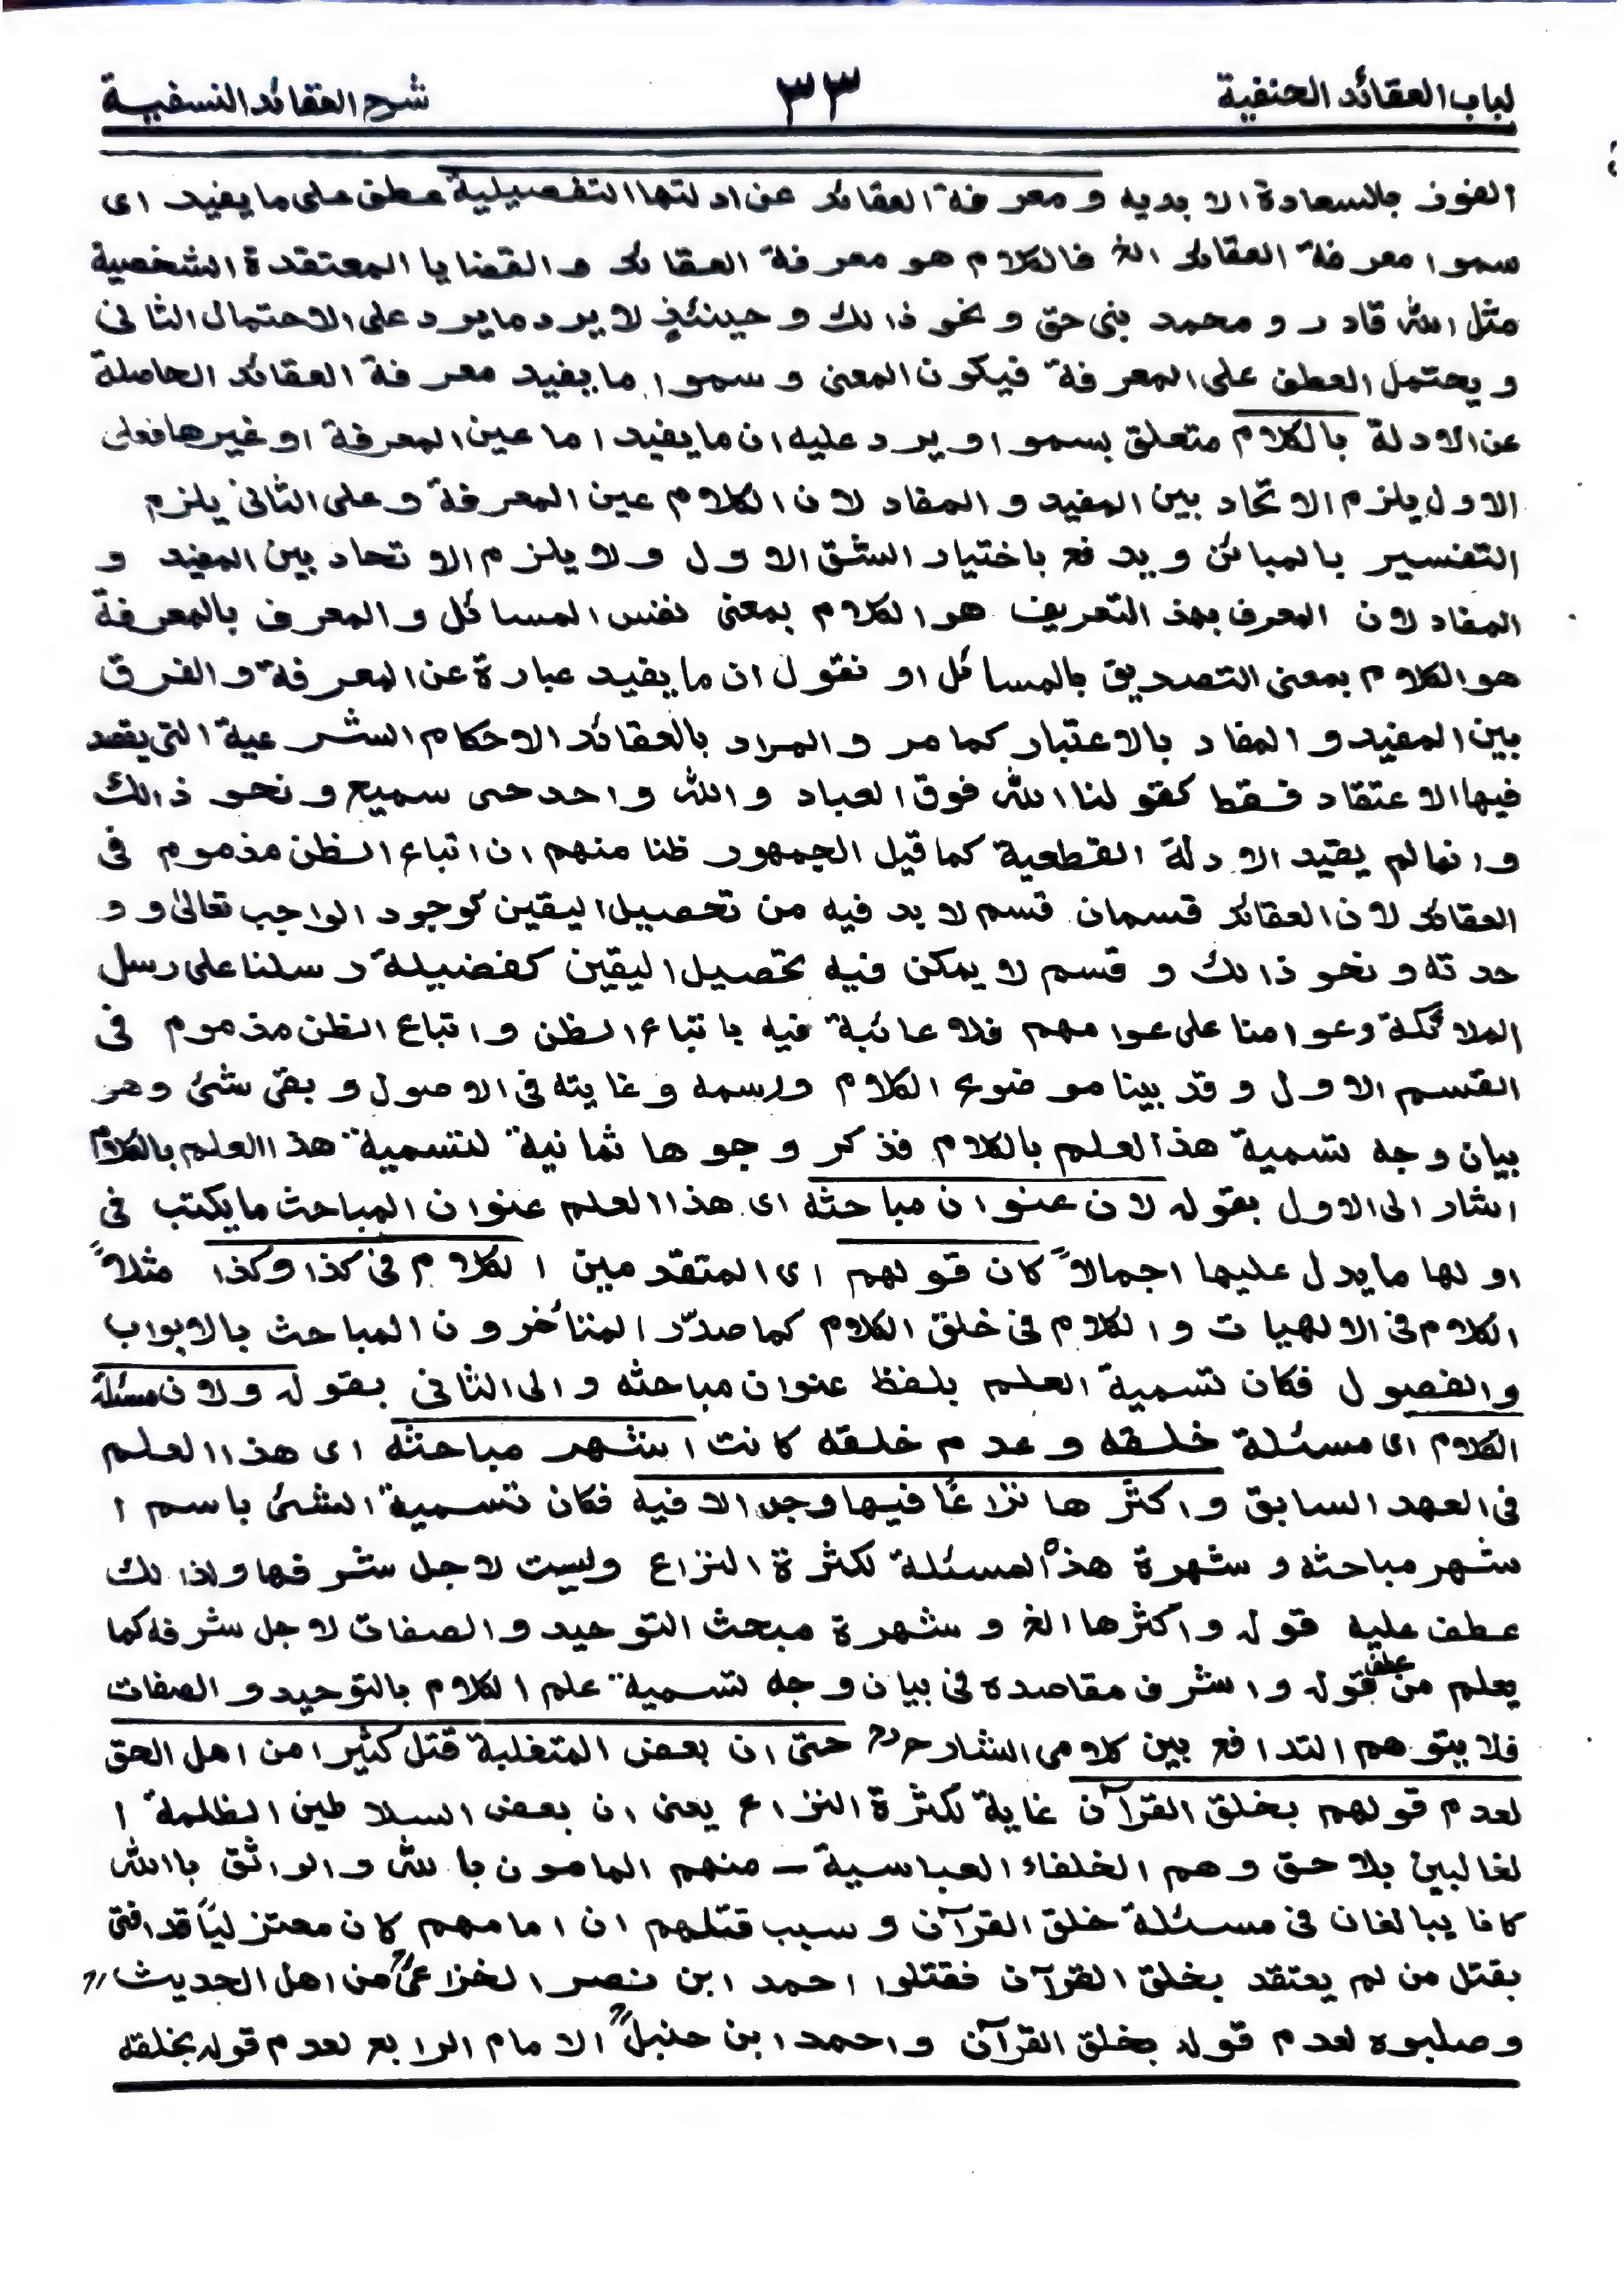 لباب العقائد الحنفية ٣٣ شرح العقائد النسفية
الفوز بالسعادة الابديه و معرفة العقائد عن ادلتها التفصيلية عطف على ما يفيد اى
سموا معرفة العقائد الخ فالكلام هو معرفة العقائد و القضايا المعتقدة الشخصية
مثل الله قادر و محمد بنى حق و نحو ذالك و حينئذٍ لا يرد ما يرد على الاحتمال الثانى
و يحتمل العطف على المعرفة فيكون المعنى و سموا ما يفيد معرفة العقائد الحاصلة
عن الادلة بالكلام متعلق بسموا و يرد عليه ان ما يفيد اما عين المعرفة او غيرها فعلى
الاول يلزم الاتحاد بين المفيد و المفاد لان الكلام عين المعرفة و على الثانى يلزم
التفسير بالمبائن و يدفع باختيار الشق الاول و لا يلزم الاتحاد بين المفيد و
المفاد لان المعرف بهذ التعريف هو الكلام بمعنى نفس المسائل و المعرف بالمعرفة
هو الكلام بمعنى التصديق بالمسائل او نقول ان ما يفيد عبارة عن المعرفة و الفرق
بين المفيد و المفاد بالاعتبار كما مر و المراد بالعقائد الاحكام الشرعية التى يقصد
فيها الاعتقاد فقط كقولنا الله فوق العباد و الله واحد حى سميع و نحو ذالك
و انما لم يقيد الادلة القطعية كما قيل الجمهور ظنا منهم ان اتباع الظن مذموم فى
العقائد لان العقائد قسمان قسم لا بد فيه من تحصيل اليقين كوجود الواجب تعالىٰ و و
حدته و نحو ذالك و قسم لا يمكن فيه تحصيل اليقين كفضيلة رسلنا على رسل
الملائكة و عوامنا على عوامهم فلا عائبة فيه باتباع الظن و اتباع الظن مذموم فى
القسم الاول و قد بينا موضوع الكلام و رسمه و غايته فى الاصول و بقى شئ وهو
بيان وجه تسمية هذ العلم بالكلام فذكر وجوها ثمانية لتسمية هذا العلم بالكلام
اشار الى الاول بقوله لان عنوان مباحثه اى هذا العلم عنوان المباحث ما يكتب فى
اولها ما يدل عليها اجمالاً كان قولهم اى المتقدمين الكلام فى كذا و كذا مثلاً
الكلام فى الالهيات و الكلام فى خلق الكلام كما صدّر المتأخرون المباحث بالابواب
و الفصول فكان تسمية العلم بلفظ عنوان مباحثه و الى الثانى بقوله و لان مسئلة
الكلام اى مسئلة خلقه و عدم خلقه كانت اشهر مباحثه اى هذا العلم
فى العهد السابق و اكثرها نزاعًا فيها و جدالا فيه فكان تسمية الشئ باسم ا
شهر مباحثه و شهرة هذه المسئلة لكثرة النزاع وليست لاجل شرفها ولذالك
عطف عليه قوله و اكثرها الخ و شهرة مبحث التوحيد و الصفات لاجل شرفه كما
يعلم من عطف قوله و اشرف مقاصده فى بيان وجه تسمية علم الكلام بالتوحيد و الصفات
فلا يتوهم التدافع بين كلامى الشارح رح حتى ان بعض المتغلبة قتل كثيرا من اهل الحق
لعدم قولهم بخلق القرآن غاية لكثرة النزاع يعنى ان بعض السلاطين الظلمة ا
لغالبين بلا حق وهم الخلفاء العباسية - منهم المامون بالله و الواثق باالله
كانا يبالغان فى مسئلة خلق القرآن و سبب قتلهم ان امامهم كان معتزلياً قد افتى
بقتل من لم يعتقد بخلق القرآن فقتلوا احمد ابن نصر الخزاعىؒ من اهل الحديث
و صلبوه لعدم قوله بخلق القرآن و احمد ابن حنبلؒ الامام الرابع لعدم قوله بخلقه